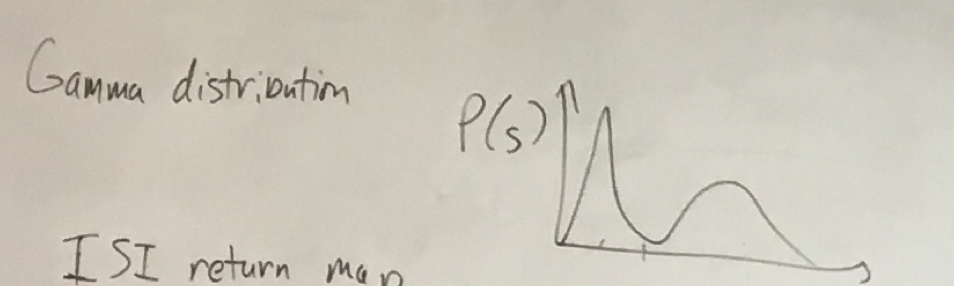 Gamma distribution
P(s)
ISI return map